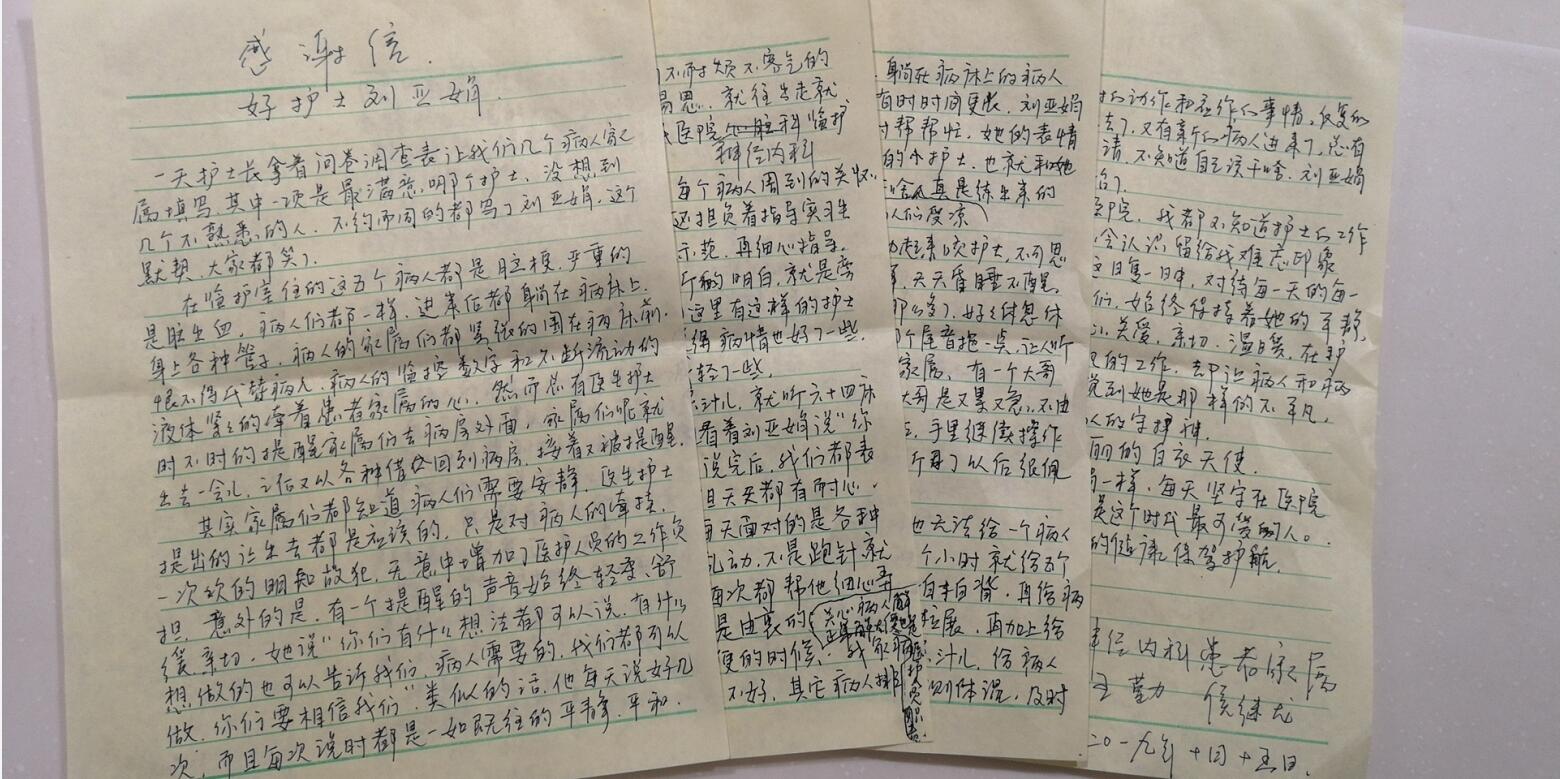 感谢信.
好护士刘亚娟.
一天护士长拿着问卷调查表让我们几个病人家
属填写.其中一项是最满意哪个护士.没想到
几个不熟悉的人.不约而同的都写了刘亚娟.这个
默契.大家都笑了.
在监护室住的这五个病人都是脑梗.严重的
是脑出血.病人们都一样.进来后都躺在病床上.
身上各种管子.病人的家属们都紧张的围在病床前.
恨不得代替病人.病人的监控数字和不断流动的
液体紧紧的牵着患者家属的心.然而总有医生护士
时不时的提醒家属们去病房外面.家属们呢就
出去一会儿.之后又以各种借口回到病房.接着又被提醒.
其实家属们都知道病人们需要安静.医生护士
提出的让出去都是应该的.只是对病人的牵挂.
一次次的明知故犯.无意中增加了医护人员的工作负
担.意外的是.有一个提醒的声音始终轻柔、舒
缓亲切.她说"你们有什么想法都可以说.有什么
想做的也可以告诉我们.病人需要的.我们都可以
做.你们要相信我们"类似的话.他每天说好几
次.而且每次说时都是一如既往的平静.平和.
不耐烦不客气的
易思.就往出走就
医院心脏科监护
神经内科
每个病人周到的关怀
还担负着指导实习生
示范.再细心指导.
明白.就是旁
这里有这样的护士
病情也好了一些.
轻了一些.
就听六十四床
看着刘亚娟说"你
说完后.我们都表
且天天都有耐心.
每天面对的是各种
乱动.不是跑针就
每次都帮他细心弄
是由衷的
关心病人
便的时候.我家
不好.其它病人排
躺在病床上的病人
有时时间更长.刘亚娟
时帮帮忙.她的表情
的小护士.也就和她
真是练出来的
护士.不可思
天天昏睡不醒.
好好休息休
个尾音拖一点.让人
家属.有一个大哥
大哥是又累又急.不由
手里继续操作
了以后很佩
也无法给一个病人
个小时就给五个
再给病
拉展.再加上给
给病人
测体温.及时
的动作和应作的事情.反复的
去了.又有新的病人进来了.总有
请.不知道自己该干啥.刘亚娟
医院.我都不知道护士的工作
会认识.留给我难忘印象
日复一日中.对待每一天的每一
们.始终保持着她的平静.
关爱.亲切.温暖.在护
的工作.却让病人和病
觉到她是那样的不平凡.
人的守护神.
丽的白衣天使.
一样.每天坚守在医院
是这个时代最可爱的人。
的健康保驾护航.
神经内科患者家属
王勤 侯继龙
二0一九年十月十五日.